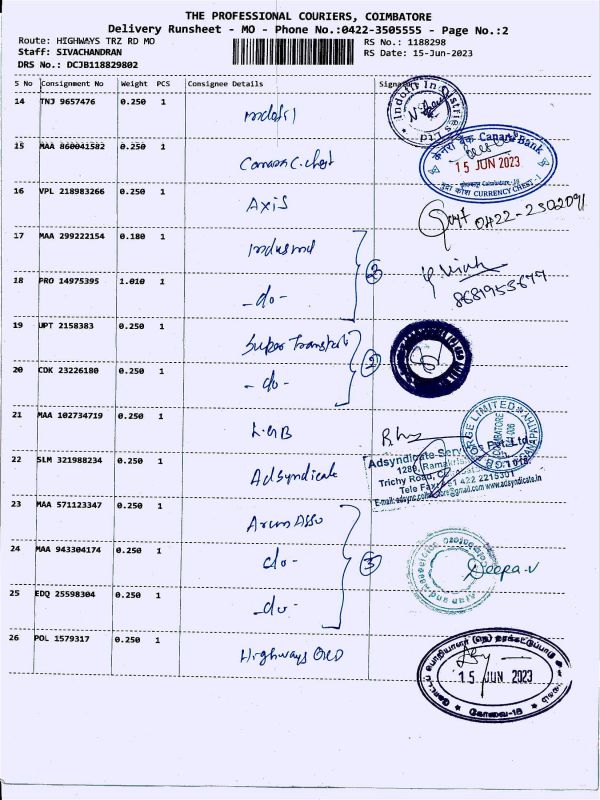 THE PROFESSIONAL COURIERS, COIMBATORE
Delivery Runsheet - MO - Phone No.:0422-3505555 - Page No.:2
Route: HIGHWAYS TRZ RD MO
RS No.: 1188298
Staff: SIVACHANDRAN
RS Date: 15-Jun-2023
DRS No.: DCJB118829802
S No Consignment No Weight PCS Consignee Details Signature
14 TNJ 9657476 0.250 1
15 MAA 860041582 0.250 1 Canara C. chest
केनरा बैंक Canara Bank
15 JUN 2023
CURRENCY CHEST - I
16 VPL 218983266 0.250 1 Axis
0422-2302091
17 MAA 299222154 0.180 1 Indusind
18 PRO 14975395 1.010 1 -do- 2
8681953677
19 UPT 2158383 0.250 1 Super Transports
20 CDK 23226180 0.250 1 -do- 2
21 MAA 102734719 0.250 1 L.G.B
LGB FORGE LIMITED
COIMBATORE
22 SLM 321988234 0.250 1 Adsyndicate
Adsyndicate Services Pvt. Ltd.
Trichy Road,
www.adsyndicate.in
23 MAA 571123347 0.250 1 Arun Asso
24 MAA 943304174 0.250 1 do- 3
Deepa-V
25 EDQ 25598304 0.250 1 -do-
26 POL 1579317 0.250 1 Highways OLD
15 JUN 2023
கோவை-18